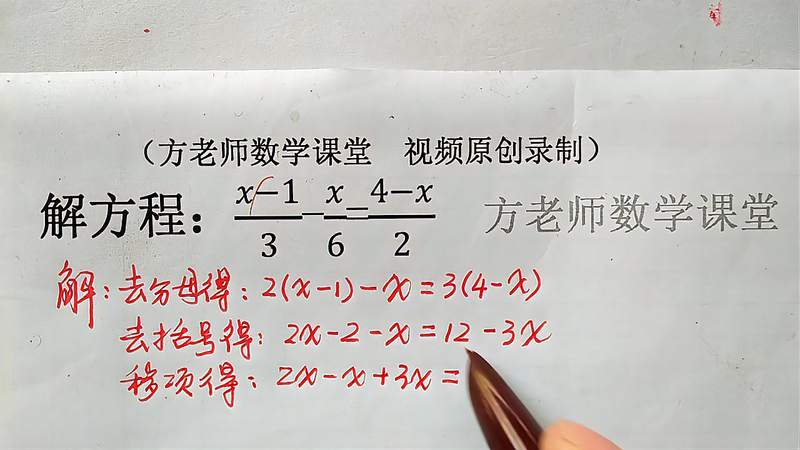 （方老师数学课堂 视频原创录制）
解方程：(x−1)/3−x/6=(4−x)/2
方老师数学课堂
解：去分母得：2(x-1)-x=3(4-x)
去括号得：2x-2-x=12-3x
移项得：2x-x+3x=